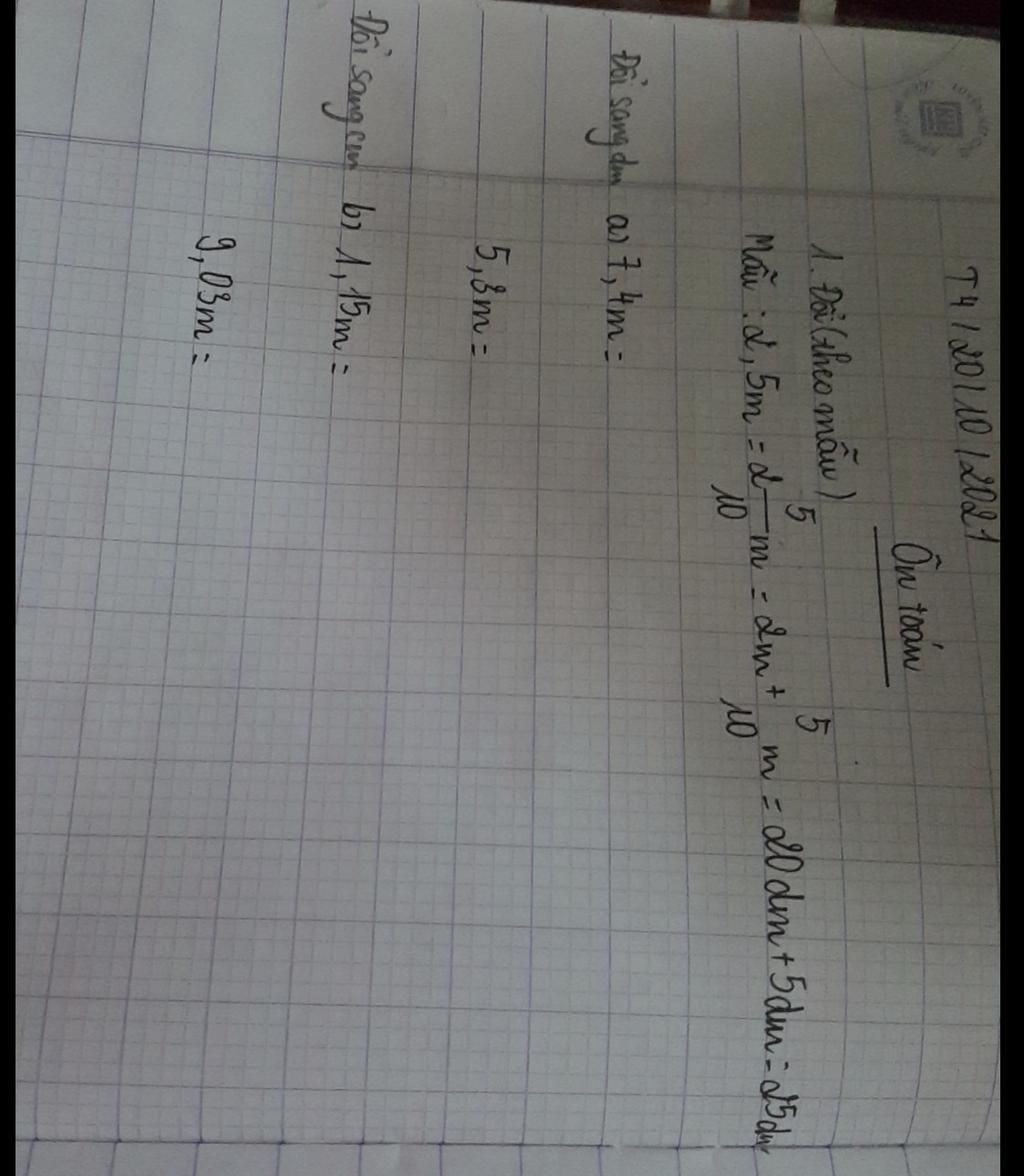 T4/20/10/2021
Ôn toán
1. Đổi (theo mẫu)
Mẫu: 2,5m = 2 5/10 m = 2m + 5/10 m = 20dm + 5dm = 25dm
Đổi sang dm a) 7,4m =
5,8m =
Đổi sang cm b) 1,15m =
9,03m =